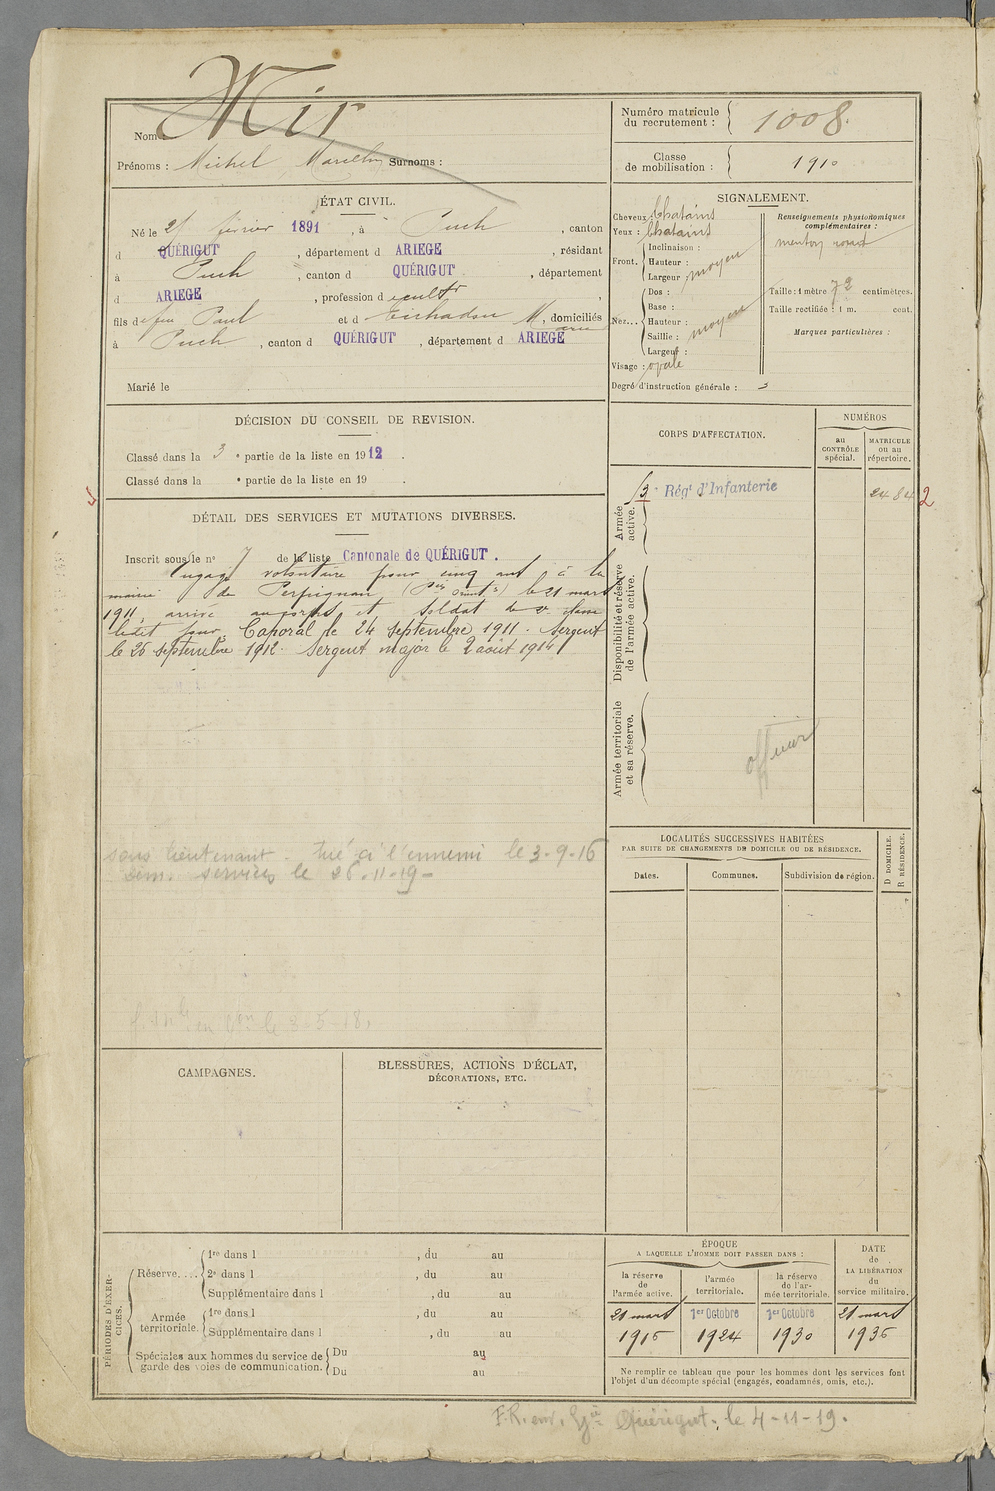 Nom : Mir
Prénoms : Michel Surnoms :
Numéro matricule du recrutement : 1008
Classe de mobilisation : 1910
ÉTAT CIVIL.
Né le février 1891, à Puch, canton
d QUÉRIGUT, département d ARIEGE, résidant
à Puch, canton d QUÉRIGUT, département
d ARIEGE, profession d ,
fils de feu Paul et d , domiciliés
à Puch, canton d QUÉRIGUT, département d ARIEGE
Marié le
SIGNALEMENT.
Cheveux : Chatains
Yeux : Chatains
Front. Inclinaison : Hauteur : Largeur : moyen
Nez... Dos : Base : Hauteur : Saillie : Largeur : moyen
Visage : ovale
Degré d'instruction générale : 3
Renseignements physionomiques complémentaires :
menton
Taille : 1 mètre 72 centimètres.
Taille rectifiée : 1 m. cent.
Marques particulières :
DÉCISION DU CONSEIL DE REVISION.
Classé dans la 3e partie de la liste en 1912.
Classé dans la e partie de la liste en 19 .
CORPS D'AFFECTATION.
NUMÉROS
au CONTRÔLE spécial.
MATRICULE ou au répertoire.
Armée active.
Régt d'Infanterie
2484 2
Disponibilité et réserve de l'armée active.
Armée territoriale et sa réserve.
officier
DÉTAIL DES SERVICES ET MUTATIONS DIVERSES.
Inscrit sous le n° 7 de la liste Cantonale de QUÉRIGUT.
Engagé volontaire pour cinq ans à la
mairie de Perpignan le 21 mars
1911, arrivé au corps et soldat de 2e classe
ledit jour. Caporal le 24 septembre 1911. Sergent
le 26 septembre 1912. Sergent major le 2 août 1914
sous lieutenant. tué à l'ennemi le 3-9-16
services le 26-11-19-
le 8-5-18.
LOCALITÉS SUCCESSIVES HABITÉES
PAR SUITE DE CHANGEMENTS DE DOMICILE OU DE RÉSIDENCE.
Dates. Communes. Subdivision de région.
D DOMICILE.
R RÉSIDENCE.
CAMPAGNES.
BLESSURES, ACTIONS D'ÉCLAT,
DÉCORATIONS, ETC.
PÉRIODES D'EXERCICES.
Réserve.... 1re dans l , du au
2e dans l , du au
Supplémentaire dans l , du au
Armée territoriale. 1re dans l , du au
Supplémentaire dans l , du au
Spéciales aux hommes du service de garde des voies de communication. Du au
Du au
ÉPOQUE
A LAQUELLE L'HOMME DOIT PASSER DANS :
la réserve de l'armée active.
l'armée territoriale.
la réserve de l'armée territoriale.
DATE de LA LIBÉRATION du service militaire.
21 mars 1er Octobre 1er Octobre 21 mars
1916 1924 1930 1936
Ne remplir ce tableau que pour les hommes dont les services font
l'objet d'un décompte spécial (engagés, condamnés, omis, etc.).
F.R. env. Gie Quérigut, le 4-11-19.